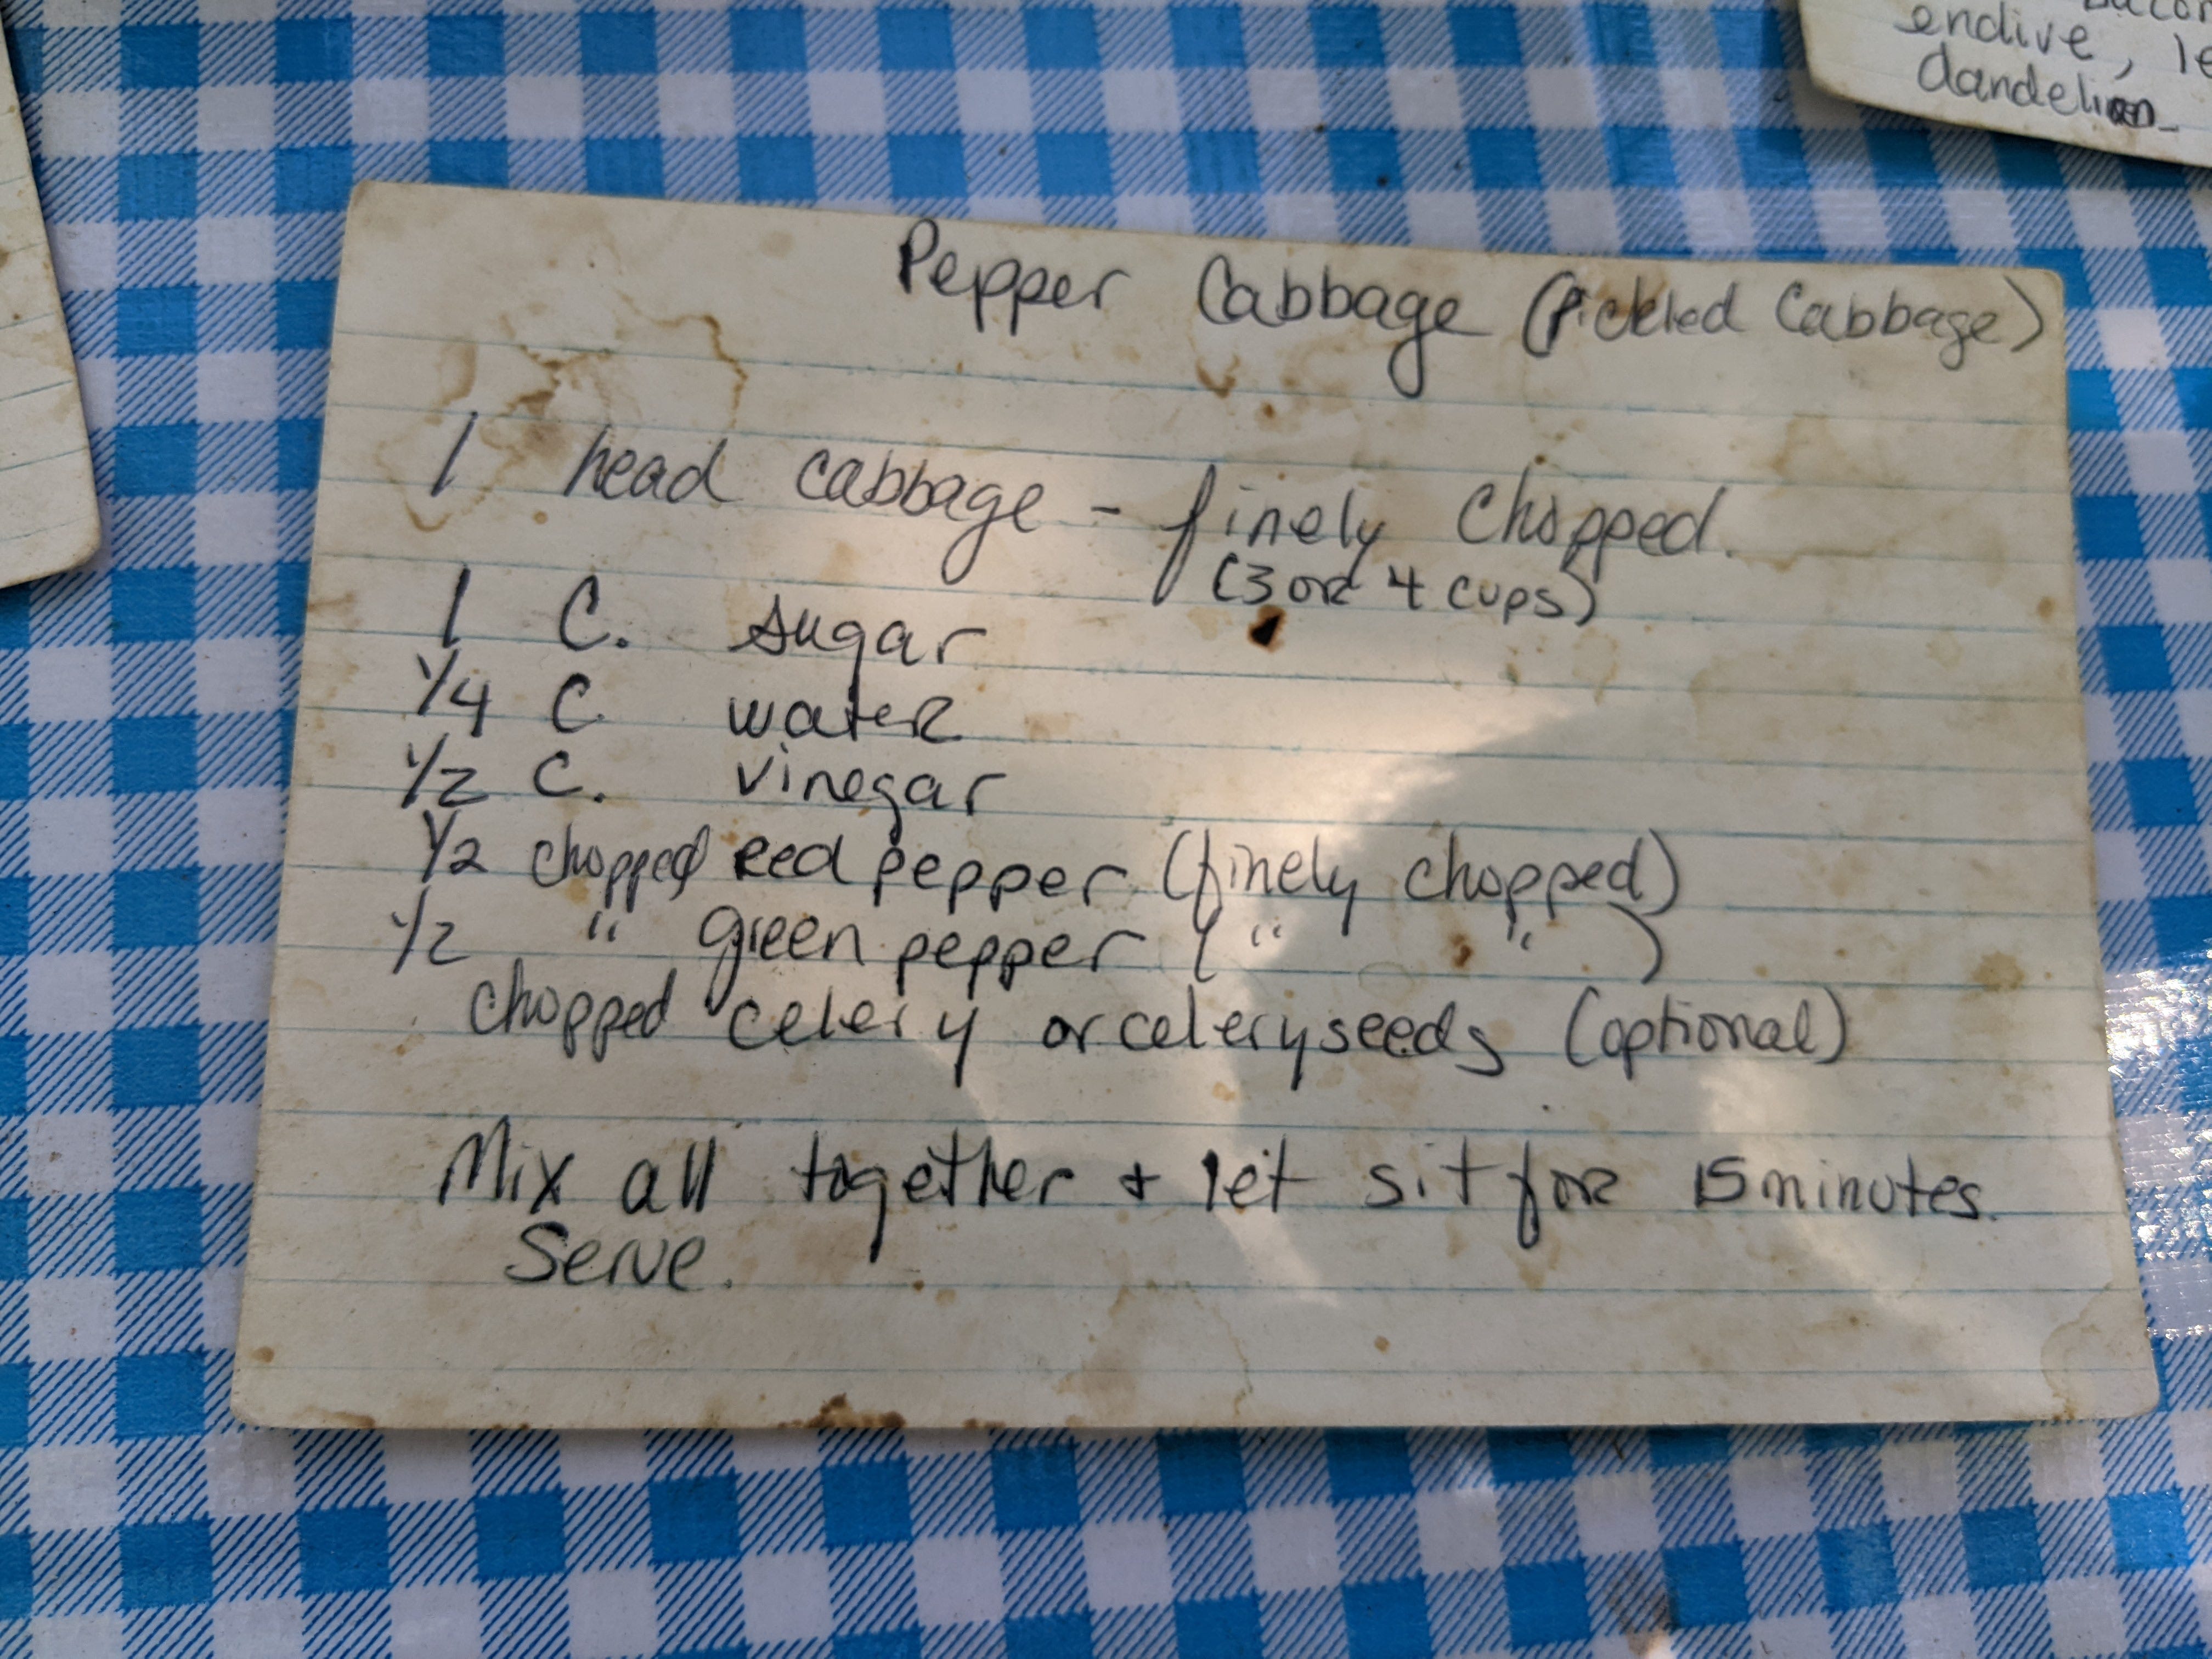 endive,
dandelion
Pepper Cabbage (Pickled Cabbage)
1 head cabbage - finely chopped.
(3 or 4 cups)
1 C. sugar
1/4 C water
1/2 C. vinegar
1/2 chopped red pepper (finely chopped)
1/2 " green pepper ( " " )
chopped celery or celery seeds (optional)
Mix all together + let sit for 15 minutes.
Serve.